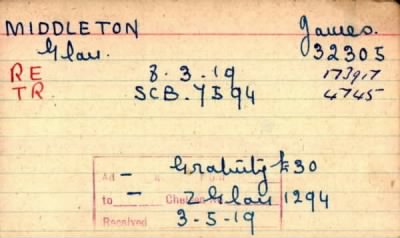 MIDDLETON James.
Glou. 32305
RE 8.3.19 173917
TR SCB. 7594 4745
Ad
- Gratuity £30
to - 2 Glou 1294
Received 3-5-19